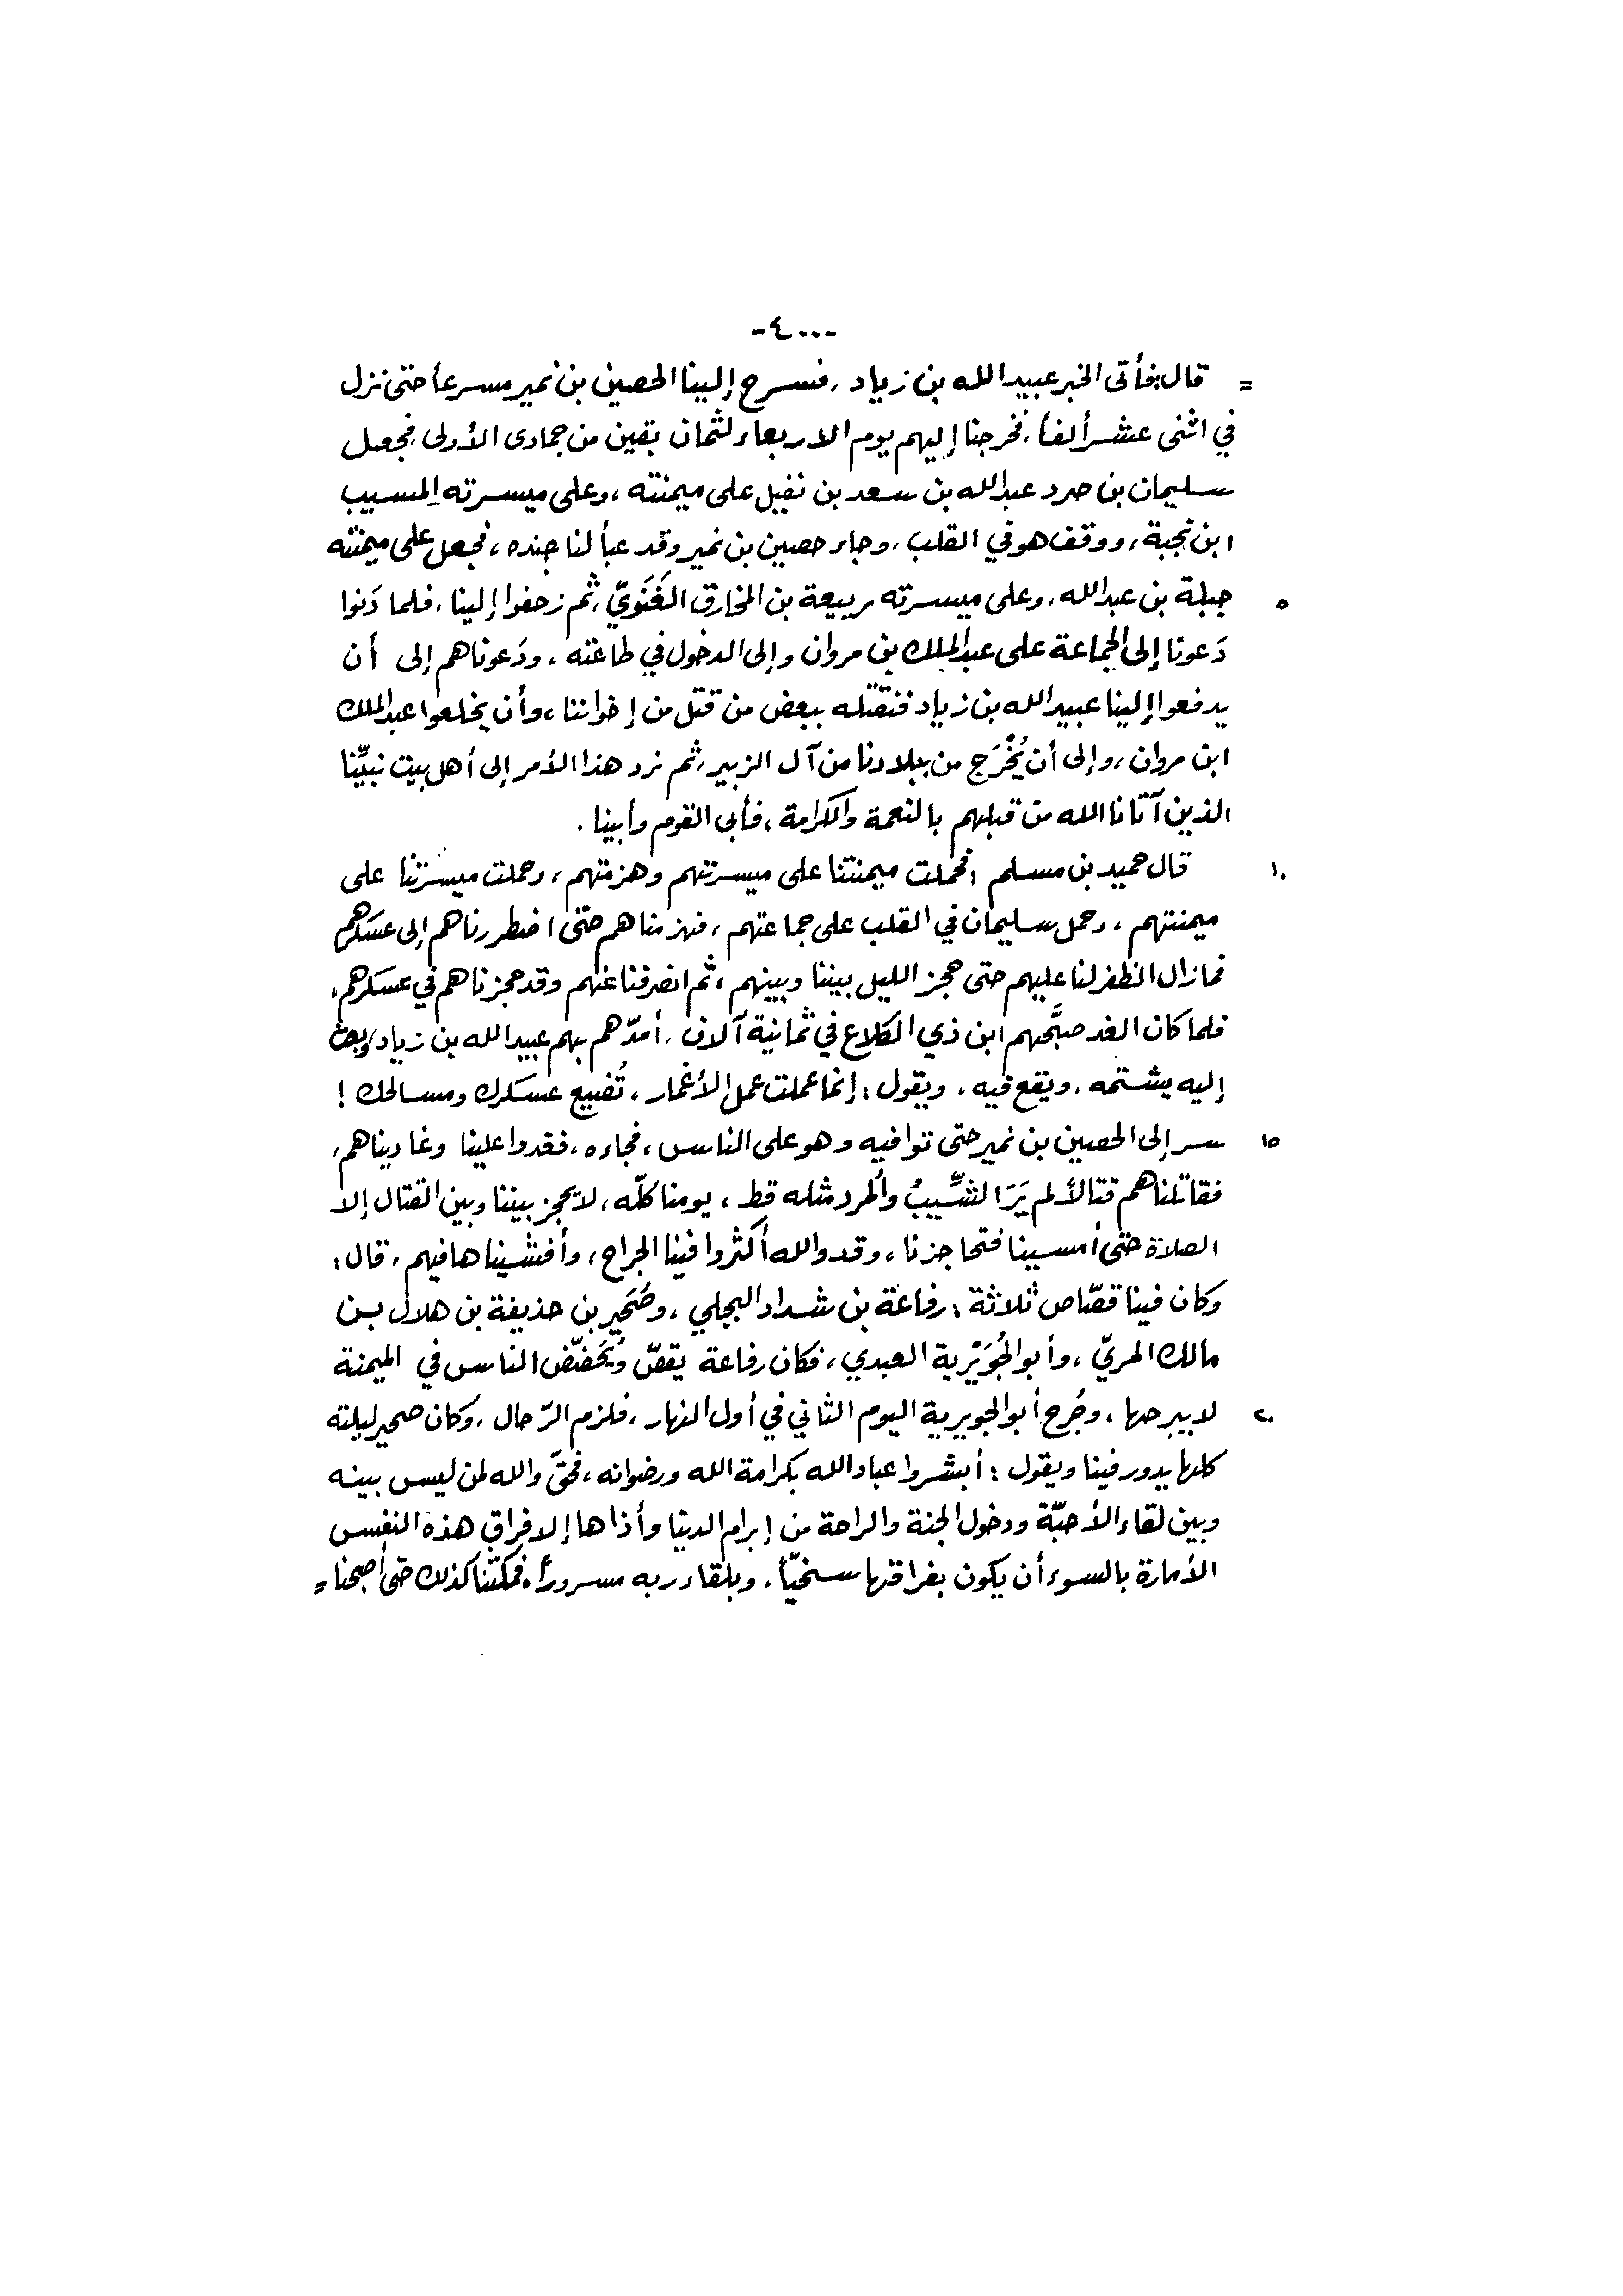 -٤٠٠-
= قال: فأتى الخبر عبيد الله بن زياد، فسرح إلينا الحصين بن نمير مسرعاً حتى نزل
في اثنى عشر ألفاً، فخرجنا إليهم يوم الاربعاء لثمان بقين من جمادى الأولى، فجعل
سليمان بن صرد عبدالله بن سعد بن نفيل على ميمنته، وعلى ميسرته المسيب
ابن نجبة، ووقف هو في القلب، وجاء حصين بن نمير وقد عبأ لنا جنده، فجعل على ميمنته
٥ جبلة بن عبدالله، وعلى ميسرته ربيعة بن المخارق الغَنَوِيّ، ثم زحفوا إلينا، فلما دَنوا
دَعونا إلى الجماعة على عبد الملك بن مروان وإلى الدخول في طاعته، ودَعوناهم إلى أن
يدفعوا إلينا عبيد الله بن زياد فنقتله ببعض من قتل من إخواننا، وأن يخلعوا عبد الملك
ابن مروان، وإلى أن يُخْرَج من ببلادنا من آل الزبير، ثم نرد هذا الأمر إلى أهل بيت نبيِّنا
الذين آتانا الله من قبلهم بالنعمة والكرامة، فأبى القوم وأبينا.
١٠ قال حميد بن مسلم: فحملت ميمنتنا على ميسرتهم وهزمتهم، وحملت ميسرتنا على
ميمنتهم، وحمل سليمان في القلب على جماعتهم، فهزمناهم حتى اضطررناهم إلى عسكرهم
فمازال الظفر لنا عليهم حتى حجز الليل بيننا وبينهم، ثم انصرفنا عنهم وقد حجزناهم في عسكرهم،
فلما كان الغد صبَّحهم ابن ذي الكلاع في ثمانية آلاف، أمدّهم بهم عبيد الله بن زياد، وبعث
إليه يشتمه، ويقع فيه، ويقول: إنما عملت عمل الأغمار، تُضيع عسكرك ومسالحك!
١٥ سر إلى الحصين بن نمير حتى توافيه وهو على الناس، فجاءه، فغدوا علينا وغاديناهم،
فقاتلناهم قتالاً لم يَرَ الشِّيبُ والمرد مثله قط، يومنا كلّه، لا يحجز بيننا وبين القتال إلا
الصلاة حتى أمسينا فتحاجزنا، وقد والله أكثروا فينا الجراح، وأفشيناها فيهم، قال:
وكان فينا قصّاص ثلاثة: رفاعة بن شداد البجلي، وصُحَير بن حذيفة بن هلال بن
مالك المريّ، وأبو الجُوَيْرية العبدي، فكان رفاعة يقصّ ويُحَضّض الناس في الميمنة
٢٠ لا يبرحها، وجُرح أبو الجويرية اليوم الثاني في أول النهار، فلزم الرّحال، وكان صحير ليلته
كلها يدور فينا ويقول: أبشروا عباد الله بكرامة الله ورضوانه، فحقّ والله لمن ليس بينه
وبين لقاء الأحبّة ودخول الجنة والراحة من إبرام الدنيا وأذاها إلا فراق هذه النفس
الأمارة بالسوء أن يكون بفراقها سخيّاً، وبلقاء ربه مسروراً، فمكثنا كذلك حتى أصبحنا =